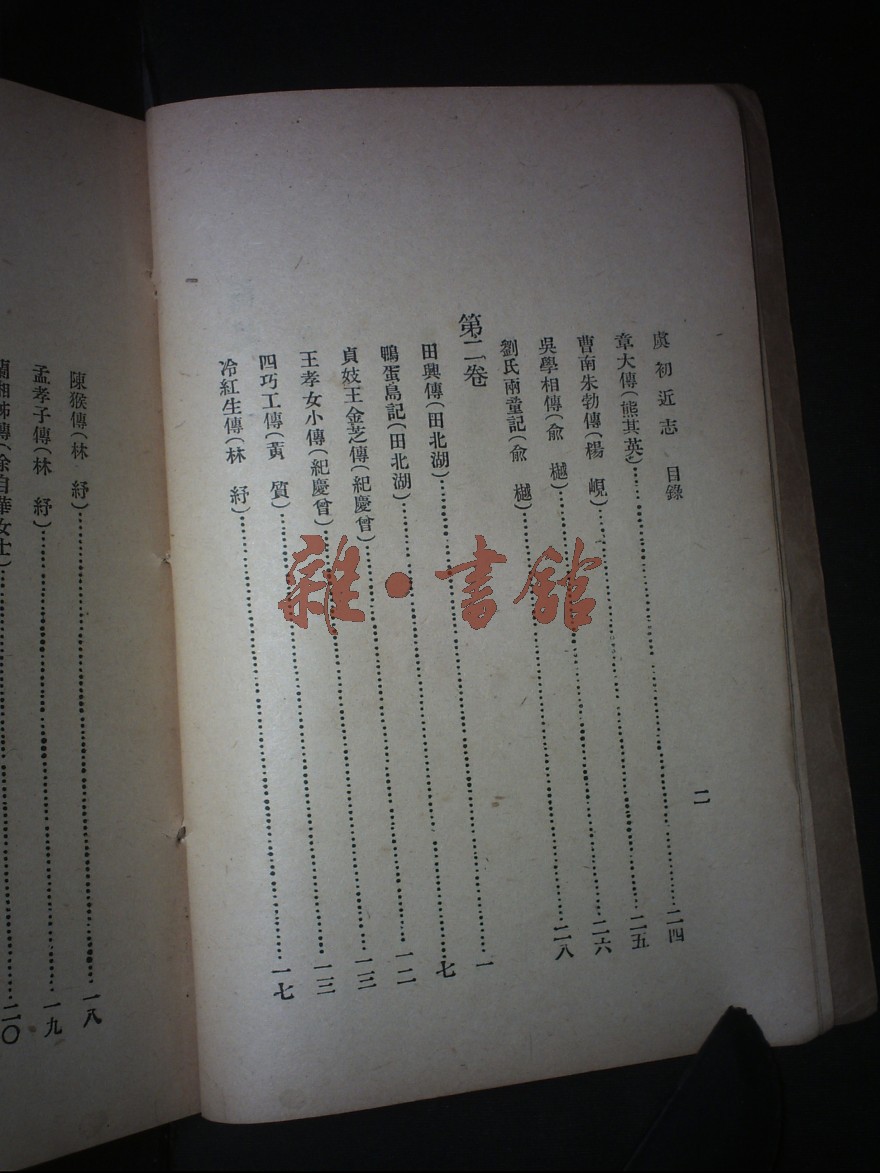 虞初近志 目錄 二
章大傳(熊其英)……二四
曹南朱勃傳(楊 峴)……二五
吳學相傳(俞 樾)……二六
劉氏兩童記(俞 樾)……二八
第二卷
田興傳(田北湖)……一
鴨蛋島記(田北湖)……七
貞妓王金芝傳(紀慶曾)……一二
王孝女小傳(紀慶曾)……一三
四巧工傳(黃 質)……一三
冷紅生傳(林 紓)……一七
陳猴傳(林 紓)……一八
孟孝子傳(林 紓)……一九
蘭湘姊傳(徐自華女士)……二〇
雜·書館